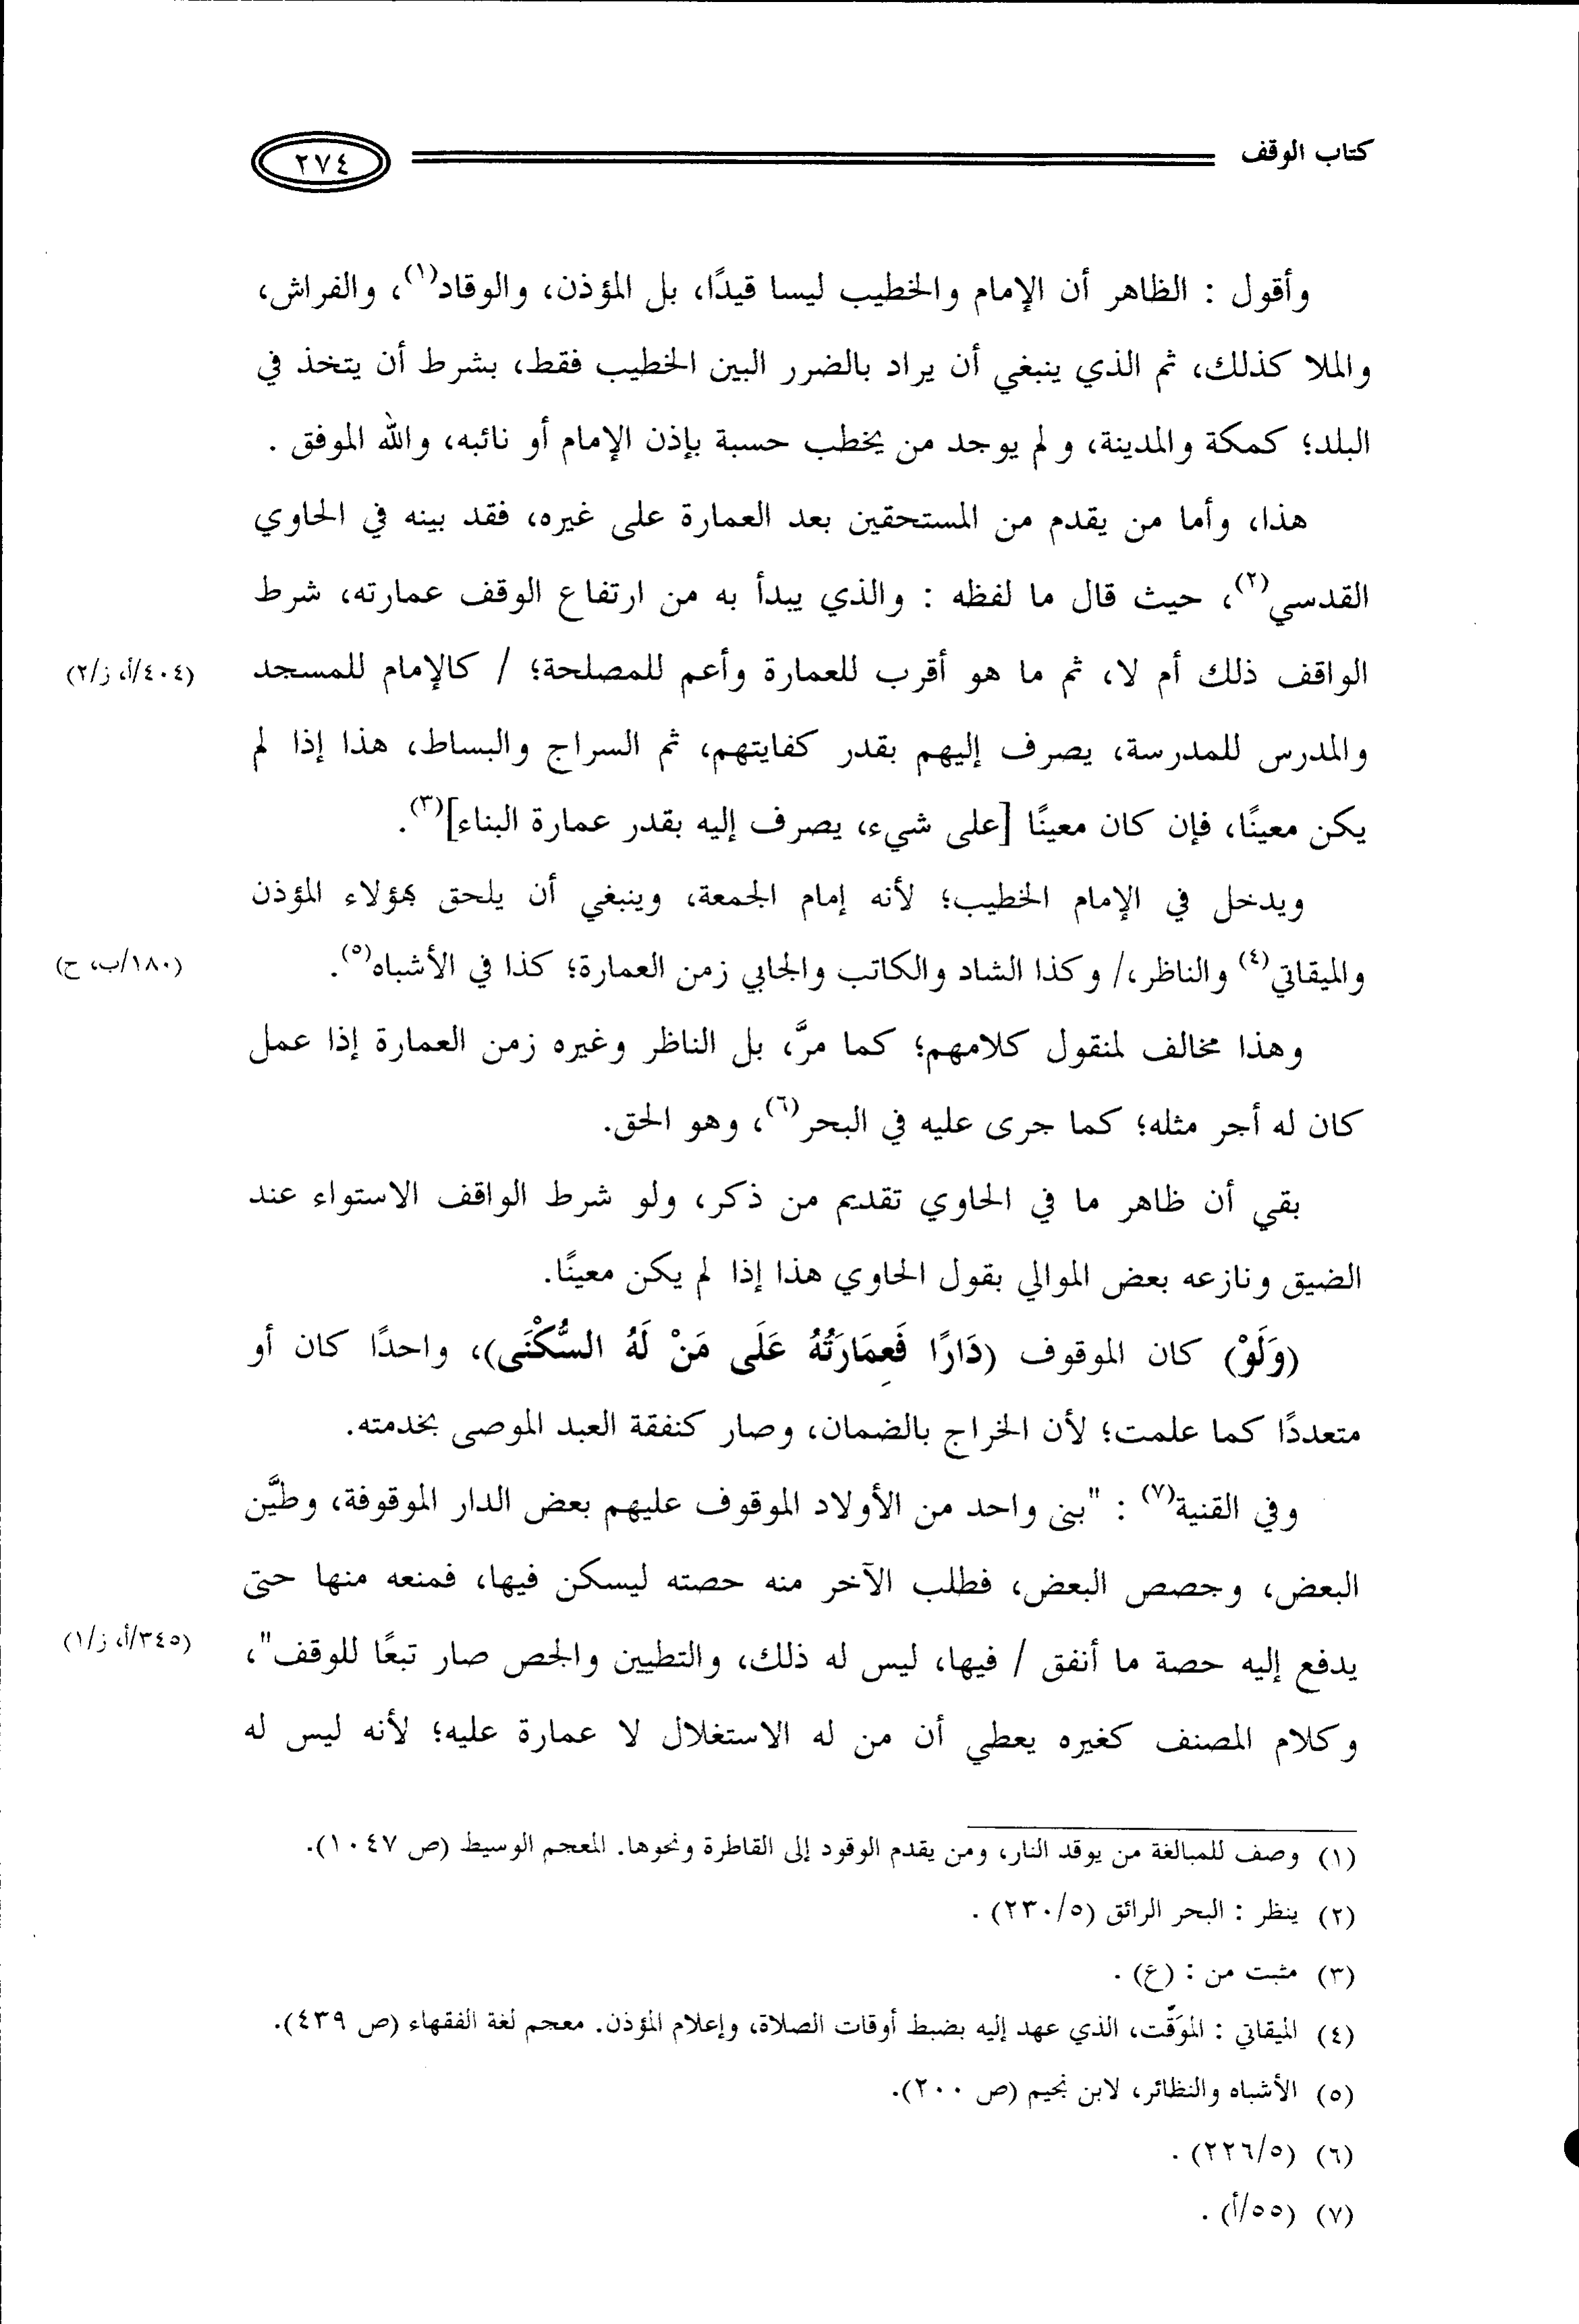 كتاب الوقف ٢٧٤
وأقول : الظاهر أن الإمام والخطيب ليسا قيدًا، بل المؤذن، والوقاد(١)، والفراش،
والملا كذلك، ثم الذي ينبغي أن يراد بالضرر البين الخطيب فقط، بشرط أن يتخذ في
البلد؛ كمكة والمدينة، و لم يوجد من يخطب حسبة بإذن الإمام أو نائبه، والله الموفق .
هذا، وأما من يقدم من المستحقين بعد العمارة على غيره، فقد بينه في الحاوي
القدسي(٢)، حيث قال ما لفظه : والذي يبدأ به من ارتفاع الوقف عمارته، شرط
الواقف ذلك أم لا، ثم ما هو أقرب للعمارة وأعم للمصلحة؛ / كالإمام للمسجد (٤٠٤/أ، ز/٢)
والمدرس للمدرسة، يصرف إليهم بقدر كفايتهم، ثم السراج والبساط، هذا إذا لم
يكن معينًا، فإن كان معينًا [على شيء، يصرف إليه بقدر عمارة البناء](٣).
ويدخل في الإمام الخطيب؛ لأنه إمام الجمعة، وينبغي أن يلحق بهؤلاء المؤذن
والميقاتي(٤) والناظر،/ وكذا الشاد والكاتب والجابي زمن العمارة؛ كذا في الأشباه(٥). (١٨٠/ب، ح)
وهذا مخالف لمنقول كلامهم؛ كما مرَّ، بل الناظر وغيره زمن العمارة إذا عمل
كان له أجر مثله؛ كما جرى عليه في البحر(٦)، وهو الحق.
بقي أن ظاهر ما في الحاوي تقديم من ذكر، ولو شرط الواقف الاستواء عند
الضيق ونازعه بعض الموالي بقول الحاوي هذا إذا لم يكن معينًا.
(وَلَوْ) كان الموقوف (دَارًا فَعِمَارَتُهُ عَلَى مَنْ لَهُ السُّكْنَى)، واحدًا كان أو
متعددًا كما علمت؛ لأن الخراج بالضمان، وصار كنفقة العبد الموصى بخدمته.
وفي القنية(٧) : "بنى واحد من الأولاد الموقوف عليهم بعض الدار الموقوفة، وطيَّن
البعض، وجصص البعض، فطلب الآخر منه حصته ليسكن فيها، فمنعه منها حتى
يدفع إليه حصة ما أنفق / فيها، ليس له ذلك، والتطيين والجص صار تبعًا للوقف"، (٣٤٥/أ، ز/١)
وكلام المصنف كغيره يعطي أن من له الاستغلال لا عمارة عليه؛ لأنه ليس له
(١) وصف للمبالغة من يوقد النار، ومن يقدم الوقود إلى القاطرة ونحوها. المعجم الوسيط (ص ١٠٤٧).
(٢) ينظر : البحر الرائق (٢٣٠/٥) .
(٣) مثبت من : (ع) .
(٤) الميقاتي : الموَقّت، الذي عهد إليه بضبط أوقات الصلاة، وإعلام المؤذن. معجم لغة الفقهاء (ص ٤٣٩).
(٥) الأشباه والنظائر، لابن نجيم (ص ٢٠٠).
(٦) (٢٢٦/٥) .
(٧) (٥٥/أ) .